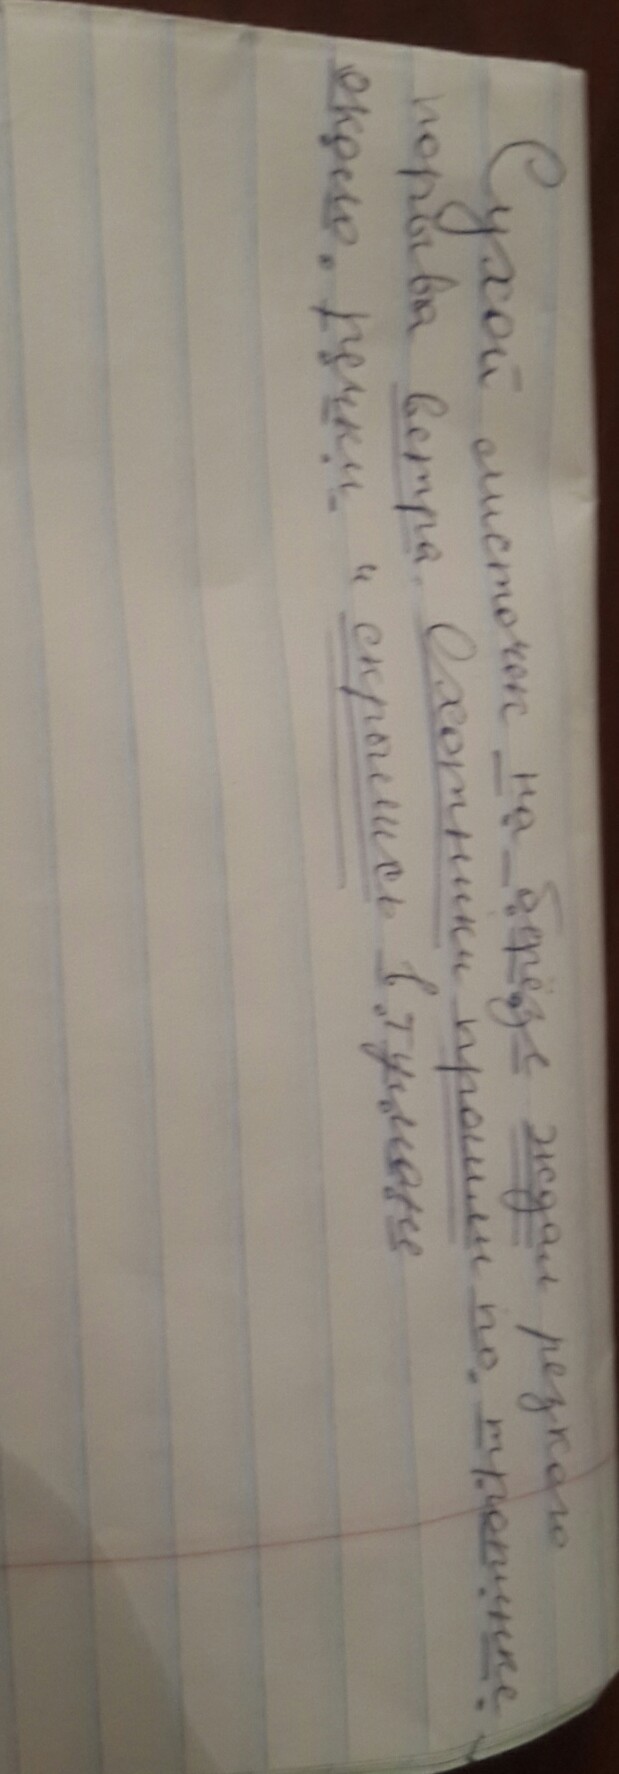 Сухой листочек на берёзе ждал резкого
порыва ветра. Охотники прошли по тропинке
около речки и скрылись в тумане